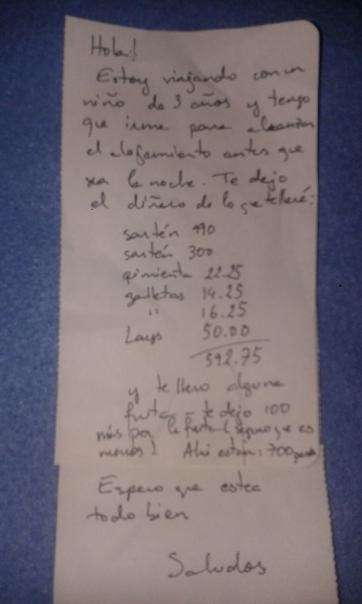 Hola!
Estoy viajando con un
niño de 3 años y tengo
que irme para alcanzar
el alojamiento antes que
sea la noche. Te dejo
el diñero de lo que llevé:
sartén 190
sartén 300
pimienta 22.25
galletas 14.25
" 16.25
Lays 50.00
592.75
y te llevo alguna
fruta - te dejo 100
más por la fruta (seguro que es
menos) Ahí están: 700
Espero que esté
todo bien
Saludos